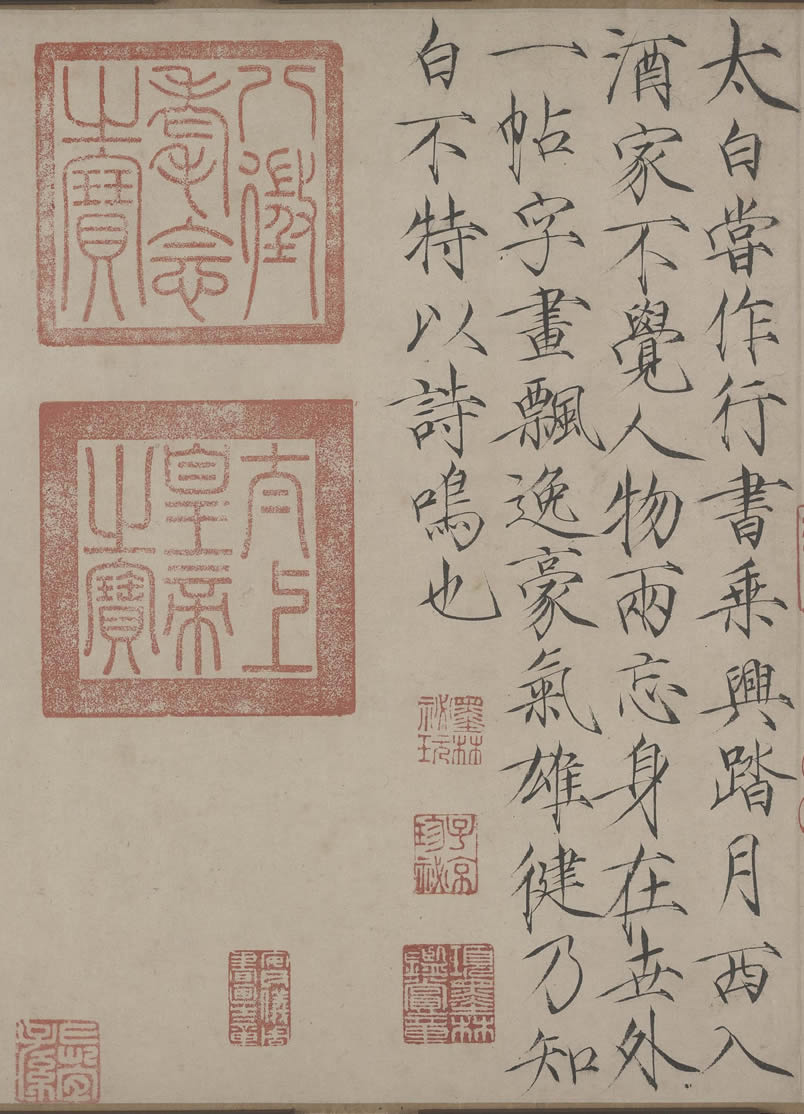 太白嘗作行書乘興踏月西入
酒家不覺人物兩忘身在世外
一帖字畫飄逸豪氣雄健乃知
白不特以詩鳴也
墨林
祕玩
子京
珍祕
項墨林
鑑賞章
安儀周
書畫之章
八徵
耄念
之寶
太上
皇帝
之寶
子孫